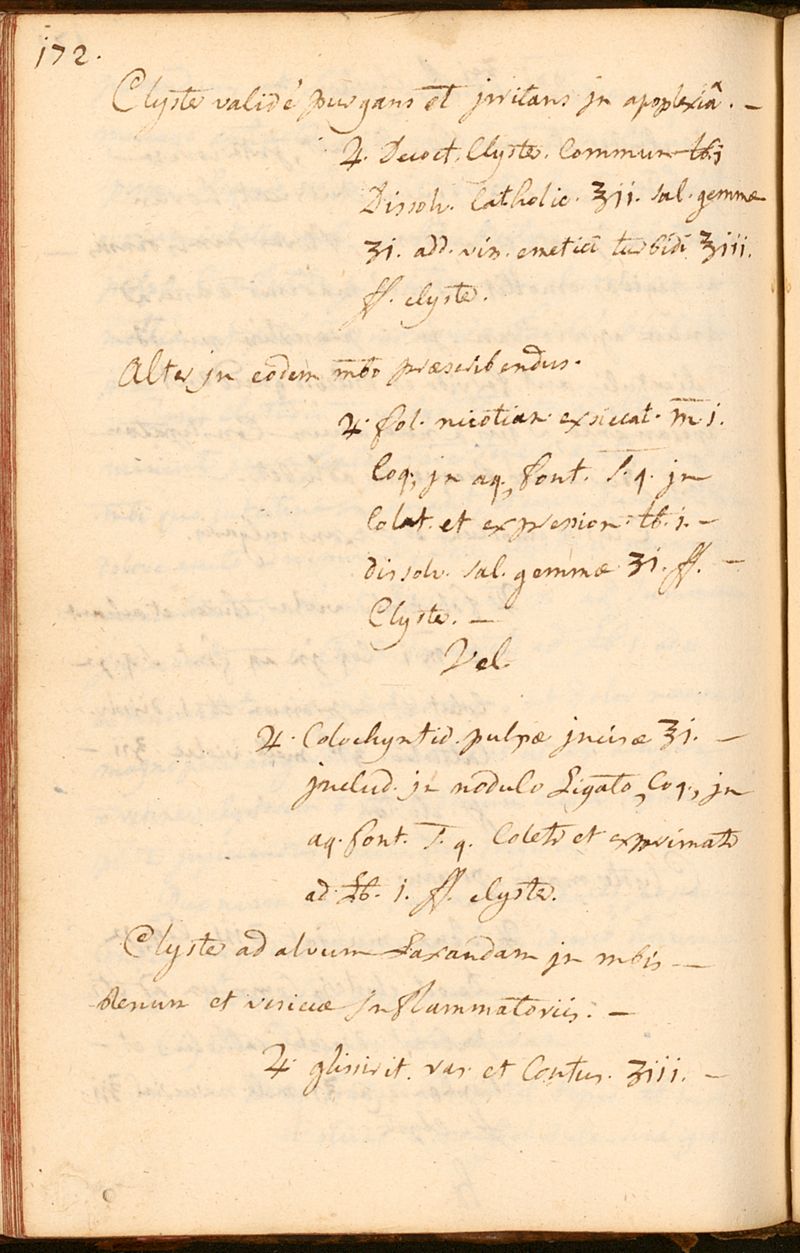 172.
Clyster validé purgans et jrritans jn apoplexiâ. –
♃. Decoct. Clyster. Commun ℔j
Dissolv. Catholic. ℥ii. sal. gemmæ
ʒi. add. vin. emetici turbidi ℥iii.
ff. clyster.
Alter jn eodem mbo præscribendus.
♃. fol. nicotian. exsiccat. m̄ i.
Coq; jn aq, font. S. q. jn
Colat. et expression. ℔. i. –
dissolv. sal. gemmæ ʒi. ff. –
Clyster. –
Vel.
♃. Colochyntid. pulpæ jncisæ ʒi. –
jnclud. jn nodulo Ligato, Coq, jn
aq. font. S. q. Coletr et exprimatr
ad ℔. i. ff. clyster.
Clyster ad alvum Laxandam jn mbis –
Renum et vesicæ Jnflammatoriis. –
♃. glissirit. ras. et Contus. ʒiii. –